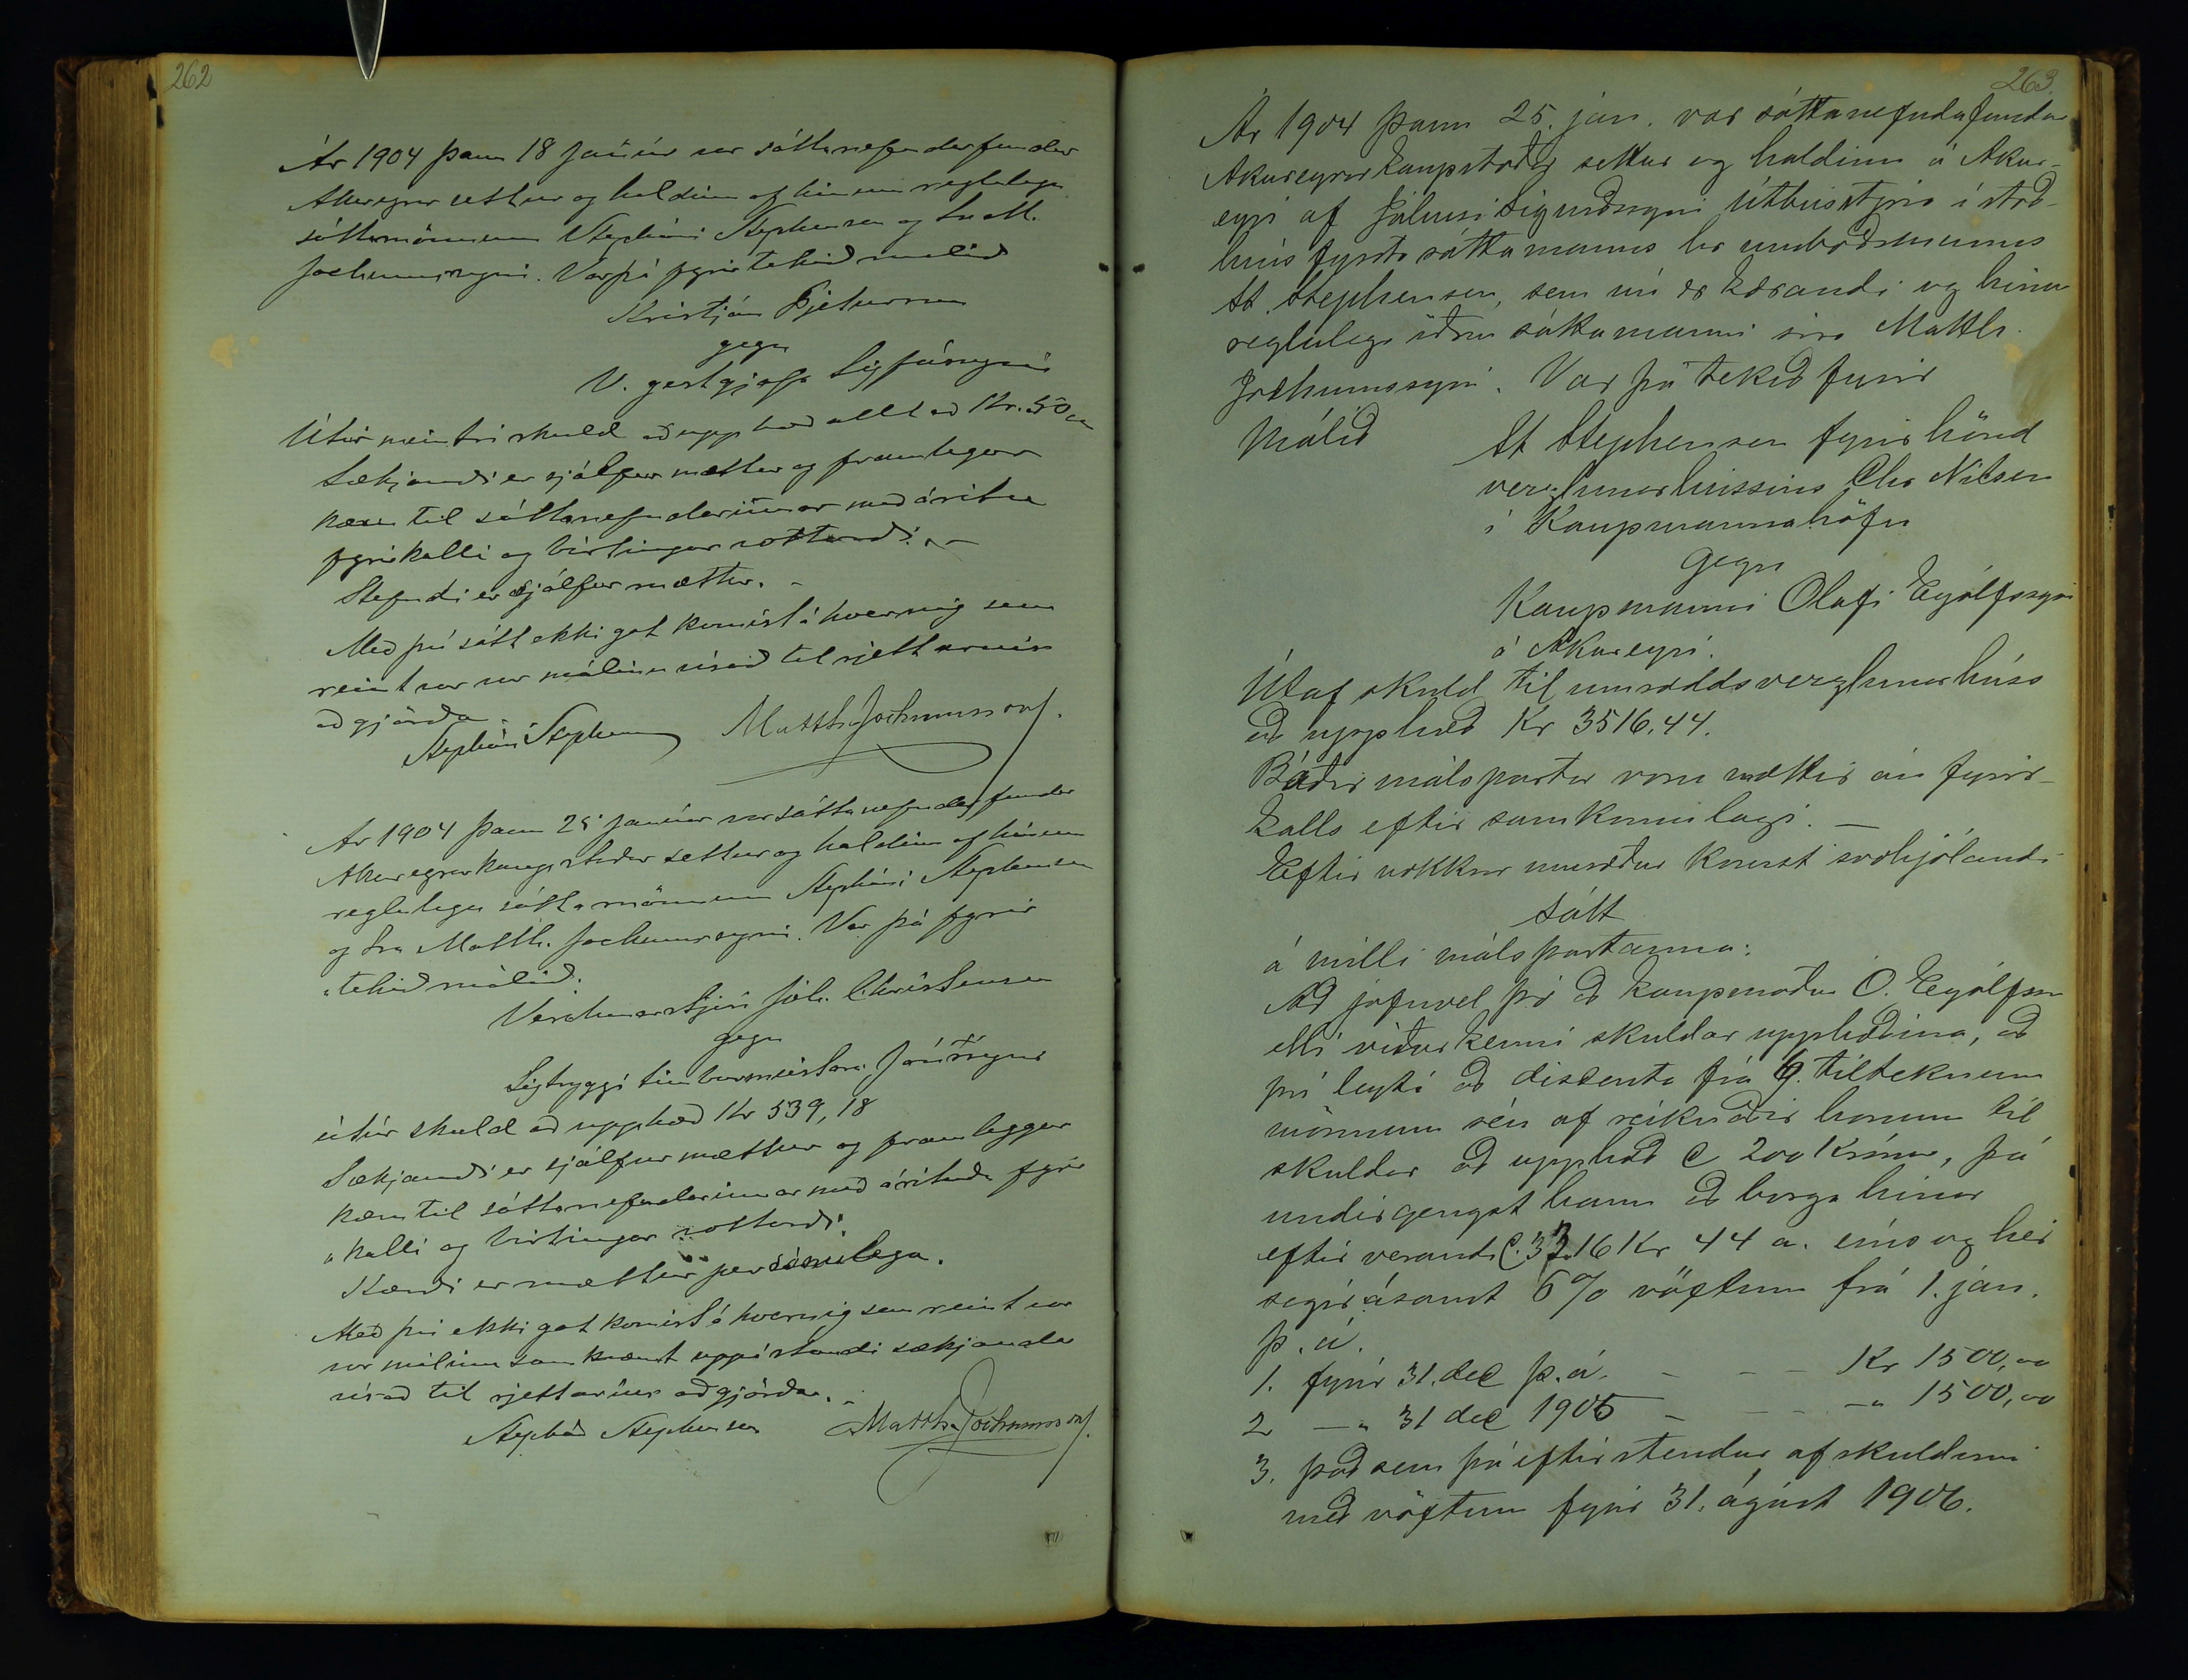 262
Ár 1904 þann 18 Janúar var sáttanefndarfundur
Akureyrar settur og haldinn af hinum reglulegu
sáttamönnum Stepháni Stephensen og Matth.
Jochumssyni. Var þá fyrir tekið málið
Kristján
gegn
V. gestgjafa Sigfússyni
Útúr meintri skuld að upphæð allt að Kr. 50
Sækjandi er sjálfur mættur og framlegur
kæru til sáttanefndarinnar með árituðu
fyrirkalli og birtingar vottorði. -
Stefndi er sjálfur mættur. -
Með því sátt ekki gat komist á hvernig sem
reint var var málinu vísað til rjettarins
aðgjörða
Stephán Stephensen Matth Jochumsson.
Ár 1904 þann 25 Janúar var sáttanefndarfundur
Akureyrarkaupstaðar settur og haldinn af hinum
reglulegu sáttamönnum Stepháni Stephensen
og Sra Matth. Jochumssyni. Var þá fyrir
"tekið málið.
Verslunarstjóri Jóh. Christensen
gegn
Sigtryggi timburmeistara Jónssyni
útúr skuld að upphæð Kr 539,18
Sækjandi er sjálfur mættur og framleggur
kæru til sáttanefndarinnar með árituðu fyrir
"kalli og birtingar vottorði.
Kærði er mættur persónulega.
Með því ekki gat komist á hvernig sem reint var
var málinu samkvæmt uppástandi sækjanda
vísað til rjettarins aðgjörða. -
Stephán Stephensen Matth Jochumsson.
263.
Ár 1904 þann 25. jan. var sáttanefndafundur
Akureyrarkaupstaðar settur og haldinn á Akur-
eyri af Júlíusi Sigurðssyni Útbústjóra í stað
hins fyrsta sáttamanns hr umboðsmanns
St. Stephensen, sem nú er kærandi og hinum
reglulega öðrum sáttamanni sira Matth.
Jochumssyni. Var þá tekið fyrir
Málið St Stephensen fyrir hönd
verzlunarhússins Chr Nilsen
í Kaupmannahöfn
gegn
Kaupmanni Olafi Eyólfssyni
á Akureyri.
Útaf skuld til umrædds verzlunarhúss
að upphæð Kr 3516.44.
Báðir málspartar voru mættir án fyrir-
kalls eftir samkomulagi. -
Eftir nokkrar umræður komst svohljóðandi
sátt
á milli málspartanna:
Að jafnvel þó að kaupmaður O. Eyólfsson
ekki viðurkenni skuldar upphæðina, að
því leyti að discento frá 6. tilteknum
mönnum séu af reiknaðir honum til
skuldar að upphæð C 200 Krónur, þá
undirgengst hann að borga hinar
eftir verandi C. 3316 Kr 44 a. eins og hér
segir ásamt 6% vöxtum frá 1. jan.
þ. á.
1. fyrir 31. dec þ. á. - - - Kr 1500,oo
2 -"- 31 dec 1905 - - - -" 1500,oo
3. það sem þá eftirstendur af skuldinni
með vöxtum fyrir 31. ágúst 1906.